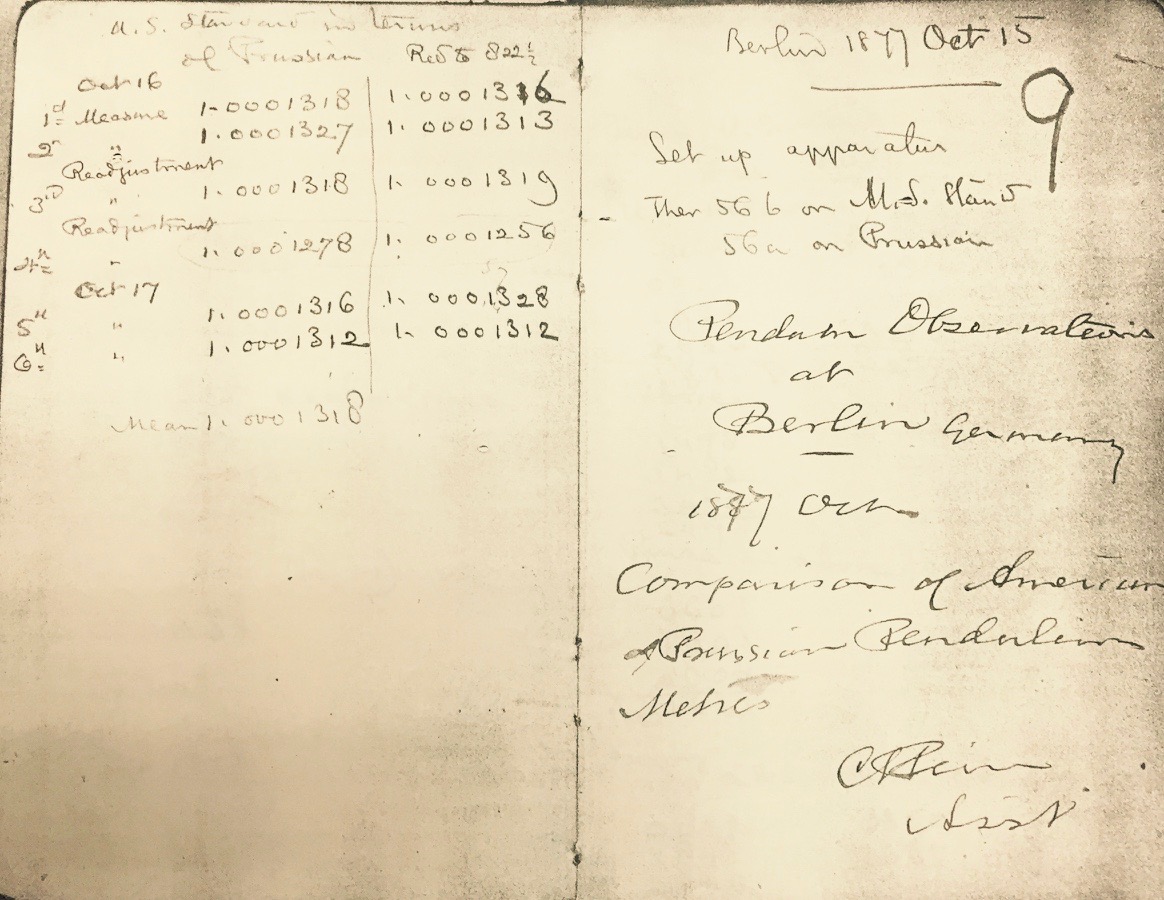 U.S. Standard in terms
of Prussian Red to 82 2½
Oct 16
1st Measure 1.0001318 1.0001316
2d " 1.0001327 1.0001313
Readjustment
3rd " 1.0001318 1.0001319
Readjustment
4th " 1.0001278 1.0001256
Oct 17
5th " 1.0001316 1.0001328
6th " 1.0001312 1.0001312
Mean 1.0001318
Berlin 1877 Oct 15
9
Set up apparatus
Ther 56 b on U.S. Stand
56a on Prussian
Pendulum Observations
at
Berlin Germany
1877 Oct
Comparison of American
& Prussian Pendulum
Metres
Asst